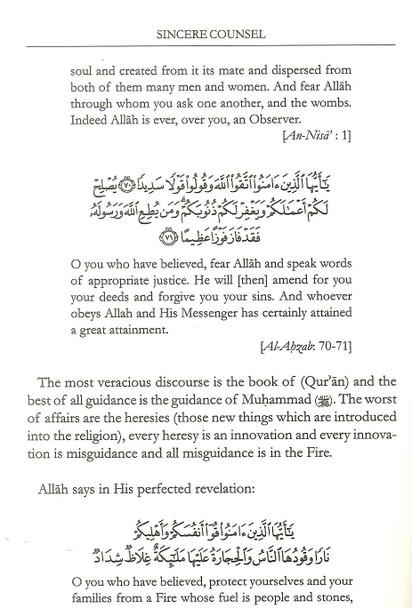 SINCERE COUNSEL
soul and created from it its mate and dispersed from
both of them many men and women. And fear Allāh
through whom you ask one another, and the wombs.
Indeed Allāh is ever, over you, an Observer.
[An-Nisā' : 1]
يَٰٓأَيُّهَا ٱلَّذِينَ ءَامَنُوا۟ ٱتَّقُوا۟ ٱللَّهَ وَقُولُوا۟ قَوْلًا سَدِيدًا ﴿٧٠﴾ يُصْلِحْ
لَكُمْ أَعْمَٰلَكُمْ وَيَغْفِرْ لَكُمْ ذُنُوبَكُمْ ۗ وَمَن يُطِعِ ٱللَّهَ وَرَسُولَهُۥ
فَقَدْ فَازَ فَوْزًا عَظِيمًا ﴿٧١﴾
O you who have believed, fear Allāh and speak words
of appropriate justice. He will [then] amend for you
your deeds and forgive you your sins. And whoever
obeys Allah and His Messenger has certainly attained
a great attainment.
[Al-Aḥzab: 70-71]
The most veracious discourse is the book of (Qur'ān) and the
best of all guidance is the guidance of Muḥammad (ﷺ). The worst
of affairs are the heresies (those new things which are introduced
into the religion), every heresy is an innovation and every innova-
tion is misguidance and all misguidance is in the Fire.
Allāh says in His perfected revelation:
يَٰٓأَيُّهَا ٱلَّذِينَ ءَامَنُوا۟ قُوٓا۟ أَنفُسَكُمْ وَأَهْلِيكُمْ
نَارًا وَقُودُهَا ٱلنَّاسُ وَٱلْحِجَارَةُ عَلَيْهَا مَلَٰٓئِكَةٌ غِلَاظٌ شِدَادٌ
O you who have believed, protect yourselves and your
families from a Fire whose fuel is people and stones,